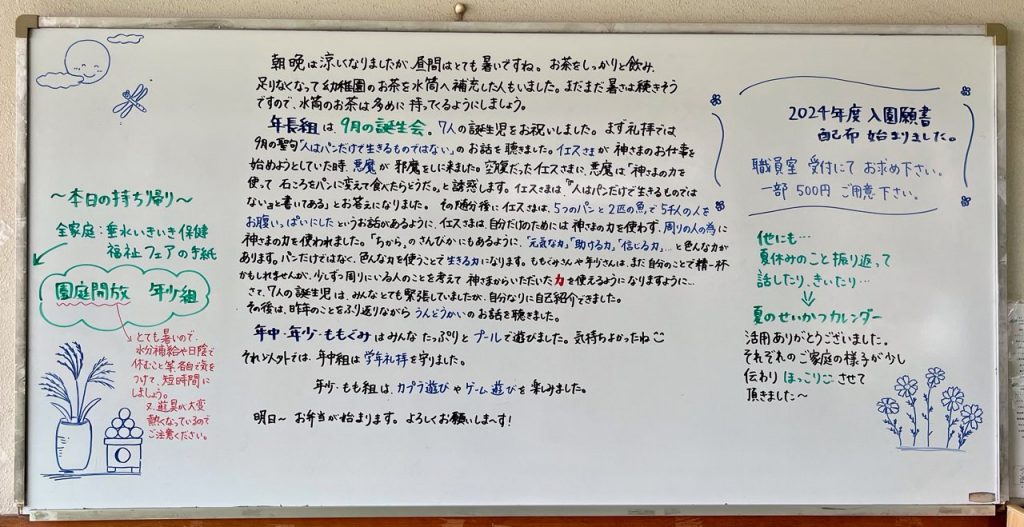 朝晩は涼しくなりましたが、昼間はとても暑いですね。お茶をしっかりと飲み、
足りなくなって幼稚園のお茶を水筒へ補充した人もいました。まだまだ暑さは続きそう
ですので、水筒のお茶は多めに持ってくるようにしましょう。
年長組は、9月の誕生会。7人の誕生児をお祝いしました。まず礼拝では
9月の聖句「人はパンだけで生きるものではない」のお話を聴きました。イエスさまが神さまのお仕事を
始めようとしていた時、悪魔が邪魔をしに来ました。空腹だったイエスさまに、悪魔は「神さまの力を
使って石ころをパンに変えて食べたらどうだ。」と誘惑します。イエスさまは、「『人はパンだけで生きるものでは
ない』と書いてある」とお答えになりました。その随分後にイエスさまは、5つのパンと2匹の魚で5千人の人を
お腹いっぱいにしたというお話があるように、イエスさまは、自分だけのためには神さまの力を使わず、周りの人の為に
神さまの力を使われました。「ちから」のさんびかにもあるように、「元気な力」「助ける力」「信じる力」…と色んな力が
あります。パンだけではなく、色んな力を使うことで生きる力になります。ももぐみさんや年少さんは、まだ自分のことで精一杯
かもしれませんが、少しずつ周りにいる人のことを考えて神さまからいただいた力を使えるようになりますように…
さて、7人の誕生児は、みんなとても緊張していましたが、自分なりに自己紹介できました。
その後は、昨年のことをふり返りながらうんどうかいのお話を聴きました。
年中・年少・ももぐみはみんなたっぷりとプールで遊びました。気持ちよかったね
それ以外では、年中組は学年礼拝を守りました。
年少・もも組は、カプラ遊びやゲーム遊びを楽しみました。
明日〜お弁当が始まります。よろしくお願いしま〜す!
〜本日の持ち帰り〜
全家庭:垂水いきいき保健
福祉フェアの手紙
園庭開放 年少組
とても暑いので、
水分補給や日陰で
休むこと等、各自で気を
つけて、短時間に
しましょう。
又、遊具が大変
熱くなっているので
ご注意ください。
2024年度入園願書
配布始まりました。
職員室受付にてお求め下さい。
一部500円ご用意下さい。
他にも…
夏休みのこと振り返って
話したり、きいたり…
⇓
夏のせいかつカレンダー
活用ありがとうございました。
それぞれのご家庭の様子が少し
伝わりほっこりさせて
頂きました〜